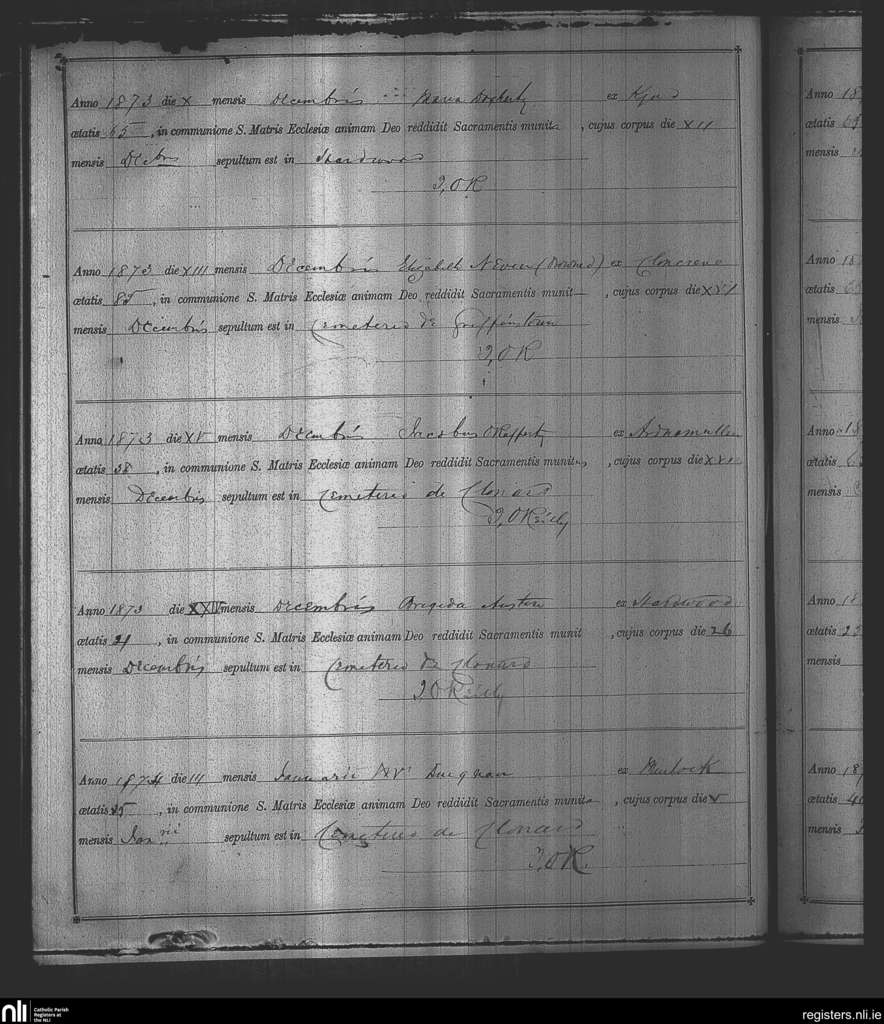 Anno 1873 die X mensis Decembris Maria Dogherty ex
ætatis 65, in communione S. Matris Ecclesiæ animam Deo reddidit Sacramentis munita, cujus corpus die XII
mensis Decbris sepultum est in Hardwood
J, OR
Anno 1873 die XIII mensis Decembris Elizabeth Neven (Drowned) ex Cloncrave
ætatis 85, in communione S. Matris Ecclesiæ animam Deo reddidit Sacramentis munit, cujus corpus die XVI
mensis Decembris sepultum est in Cemeterio de Griffinstown
J, OR
Anno 1873 die XV mensis Decembris Jacobus O'Rafferty ex Ardnamullen
ætatis 38, in communione S. Matris Ecclesiæ animam Deo reddidit Sacramentis munitus, cujus corpus die
mensis Decembris sepultum est in Cemeterio de Clonard
J, O Reilly
Anno 1873 die XXIV mensis Decembris Brigida Austin ex Hardwood
ætatis 21, in communione S. Matris Ecclesiæ animam Deo reddidit Sacramentis munit, cujus corpus die 26
mensis Decembris sepultum est in Cemeterio de Clonard
J O Reilly
Anno 1874 die III mensis Januarii Duignan ex
ætatis 25, in communione S. Matris Ecclesiæ animam Deo reddidit Sacramentis munita, cujus corpus die V
mensis Janrii sepultum est in Cemeterio de Clonard
J, OR.
Anno 18
ætatis 69
mensis
Anno 18
ætatis
mensis
Anno 18
ætatis
mensis
Anno 18
ætatis 23
mensis
Anno 18
ætatis 40
mensis
nli
Catholic Parish
Registers at
the NLI
registers.nli.ie